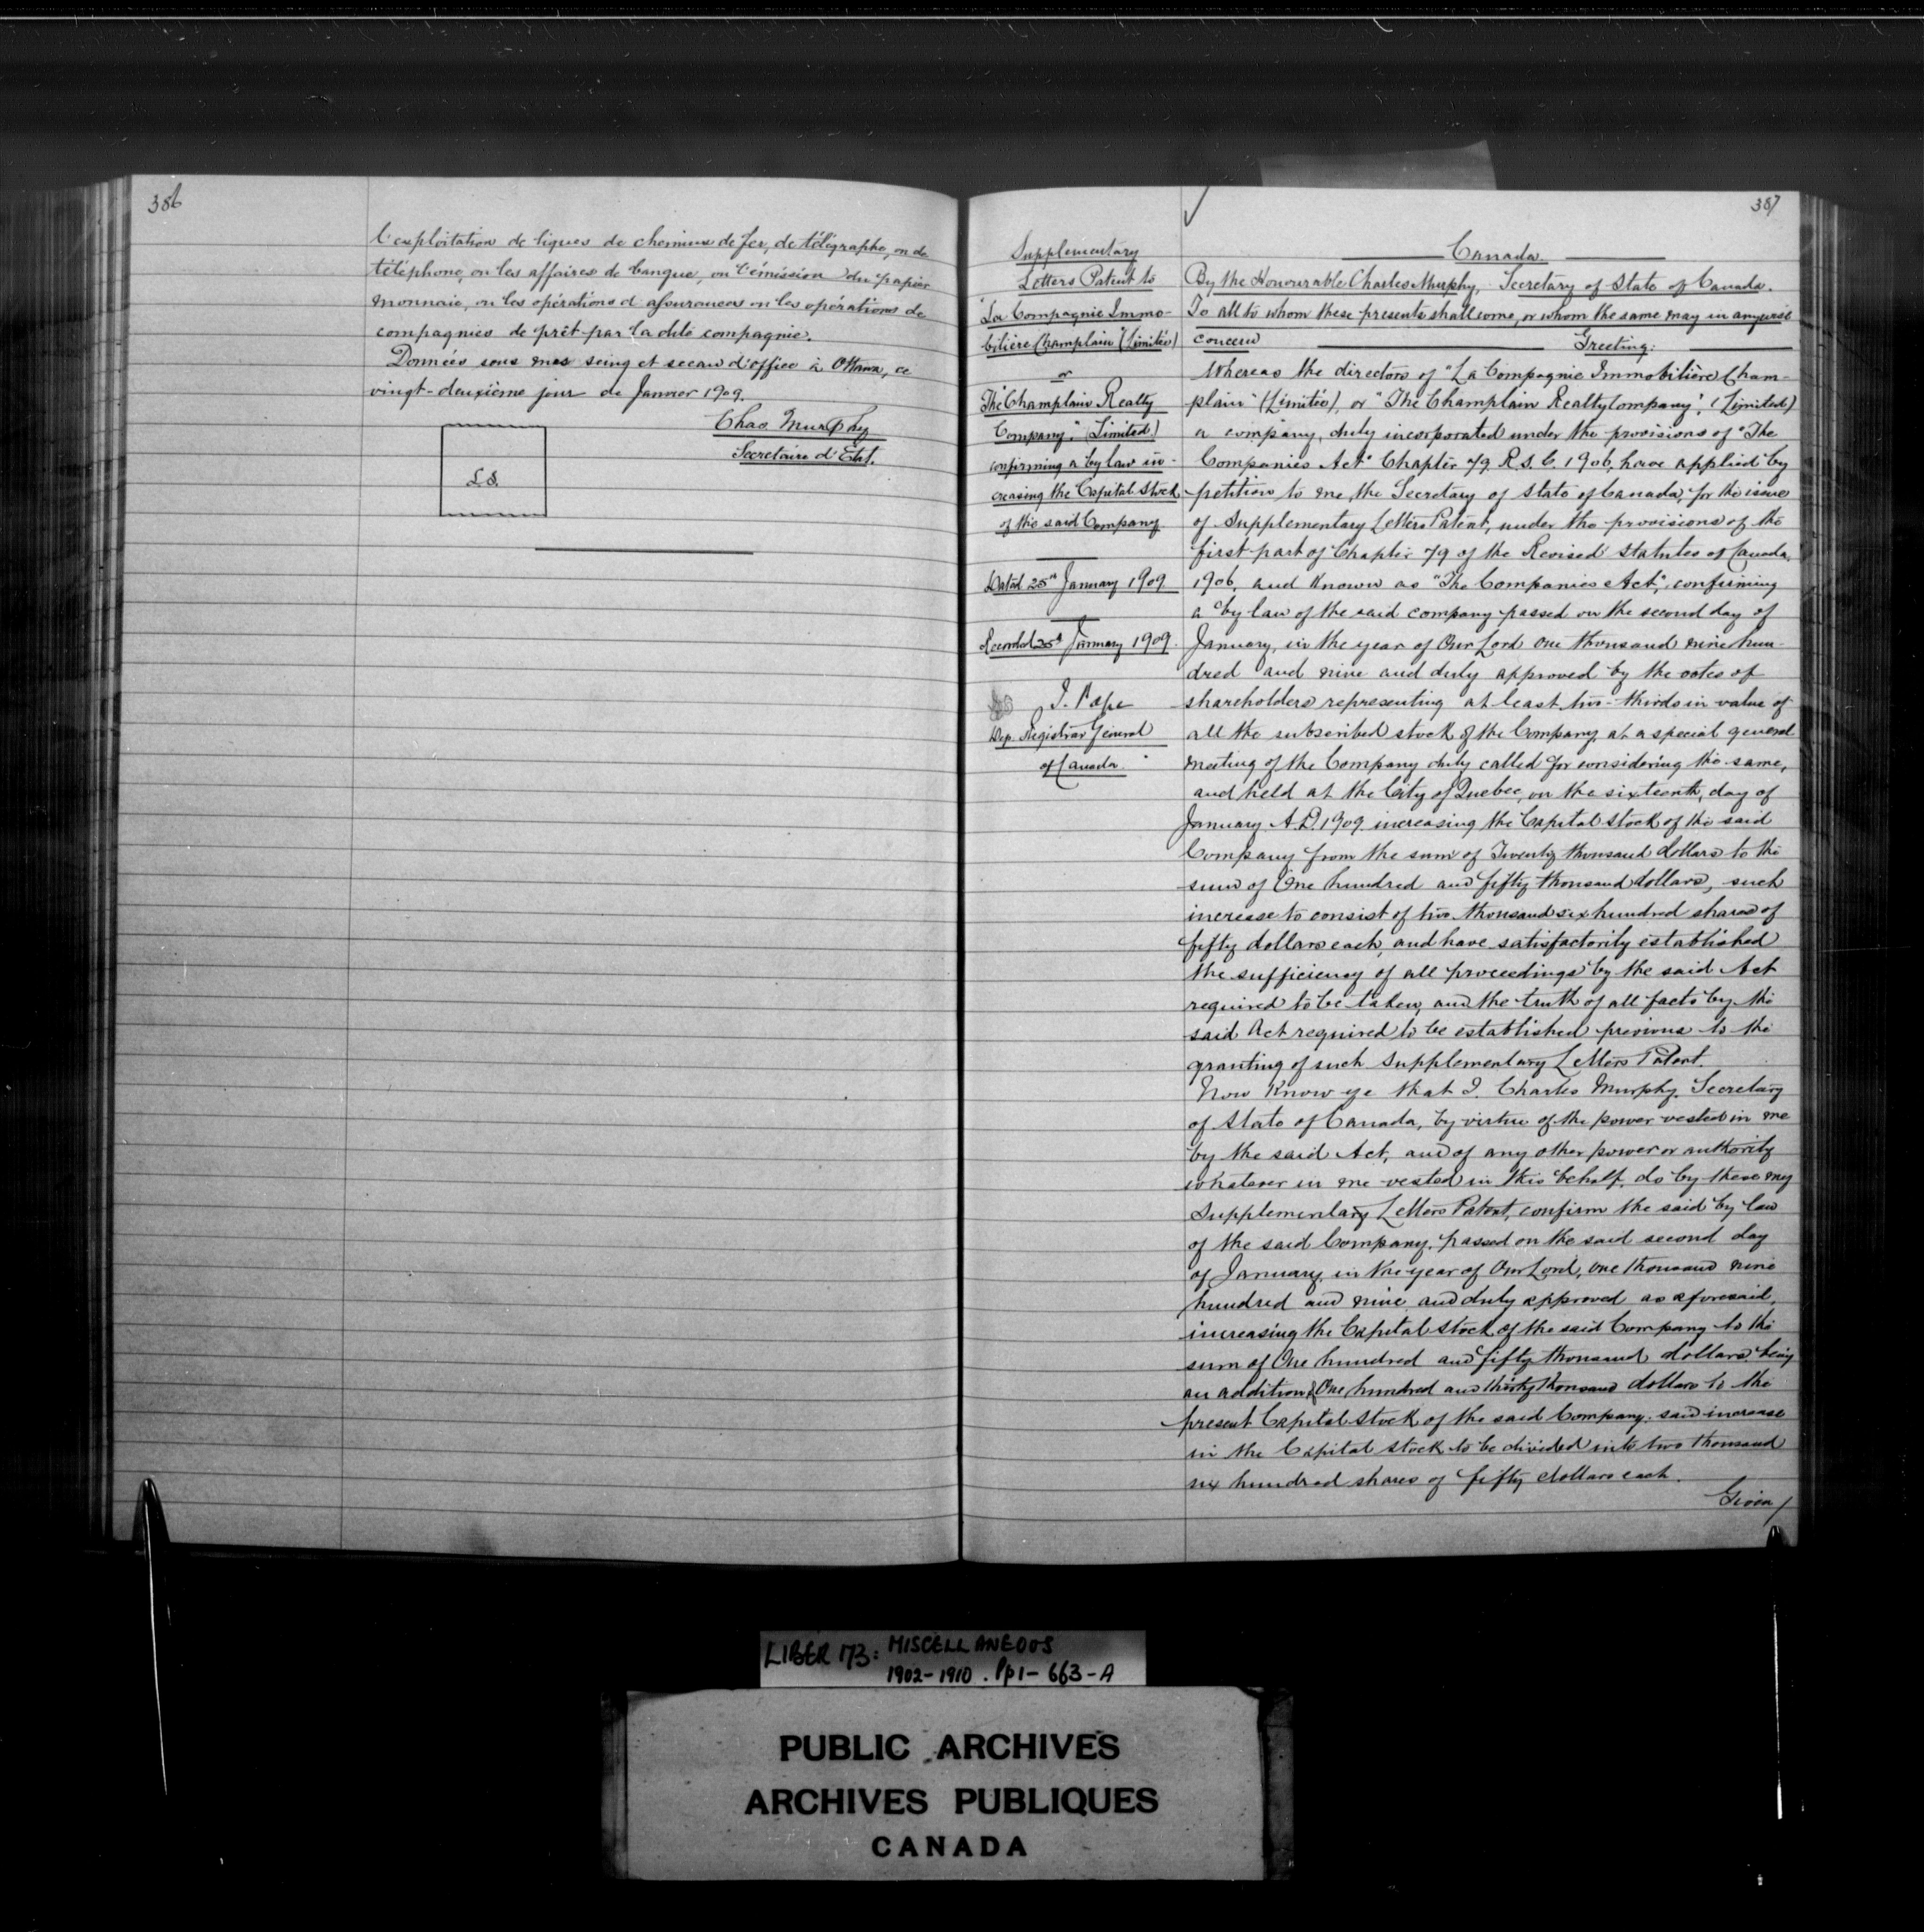 386
l'exploitation de lignes de chemins de fer, de télégraphe, ou de
téléphone, ou les affaires de banque, ou l'émission du papier
monnaie, ou les opérations d'assurances ou les opérations de
compagnies de prêt par la dite compagnie.
Données sous mes seing et sceau d'office à Ottawa, ce
vingt-deuxième jour de Janvier 1909.
Chas Murphy
Secrétaire d'Etat.
L.S.
387
Supplementary
Letters Patent to
"La Compagnie Immo-
bilière Champlain" (Limitée)
or
"The Champlain Realty
Company." (Limited)
confirming a by law in-
creasing the Capital Stock
of the said Company
Dated 25th January 1909
Recorded 25th January 1909.
J. Pope
Dep. Registrar General
of Canada
Canada.
By the Honourable Charles Murphy, Secretary of State of Canada.
To all to whom these presents shall come, or whom the same may in anywise
concern
Greeting:
Whereas the directors of "La Compagnie Immobilière Cham-
plain" (Limitée), or "The Champlain Realty Company", (Limited)
a company, duly incorporated under the provisions of "The
Companies Act" Chapter 79 R.S.C. 1906, have applied by
petition to me the Secretary of State of Canada, for the issue
of Supplementary Letters Patent, under the provisions of the
first part of Chapter 79 of the Revised Statutes of Canada,
1906, and known as "The Companies Act", confirming
a by law of the said company passed on the second day of
January, in the year of Our Lord one thousand nine hun-
dred and nine and duly approved by the votes of
shareholders representing at least two-thirds in value of
all the subscribed stock of the Company, at a special general
meeting of the Company duly called for considering the same,
and held at the City of Quebec, on the sixteenth, day of
January A.D. 1909 increasing the Capital Stock of the said
Company from the sum of Twenty thousand dollars to the
sum of One hundred and fifty thousand dollars, such
increase to consist of two thousand six hundred shares of
fifty dollars each, and have satisfactorily established
the sufficiency of all proceedings by the said Act
required to be taken, and the truth of all facts by the
said Act required to be established previous to the
granting of such Supplementary Letters Patent.
Now Know ye that I, Charles Murphy, Secretary
of State of Canada, by virtue of the power vested in me
by the said Act, and of any other power or authority
whatever in me vested in this behalf, do by these my
Supplementary Letters Patent, confirm the said by law
of the said Company, passed on the said second day
of January, in the year of Our Lord, one thousand nine
hundred and nine and duly approved as aforesaid,
increasing the Capital Stock of the said Company to the
sum of One hundred and fifty thousand dollars, being
an addition of One hundred and thirty thousand dollars to the
present Capital Stock of the said Company, said increase
in the Capital Stock to be divided into two thousand
six hundred shares of fifty dollars each.
Given/
LIBER 173: MISCELLANEOUS
1902-1910. Pp1-663-A
PUBLIC ARCHIVES
ARCHIVES PUBLIQUES
CANADA